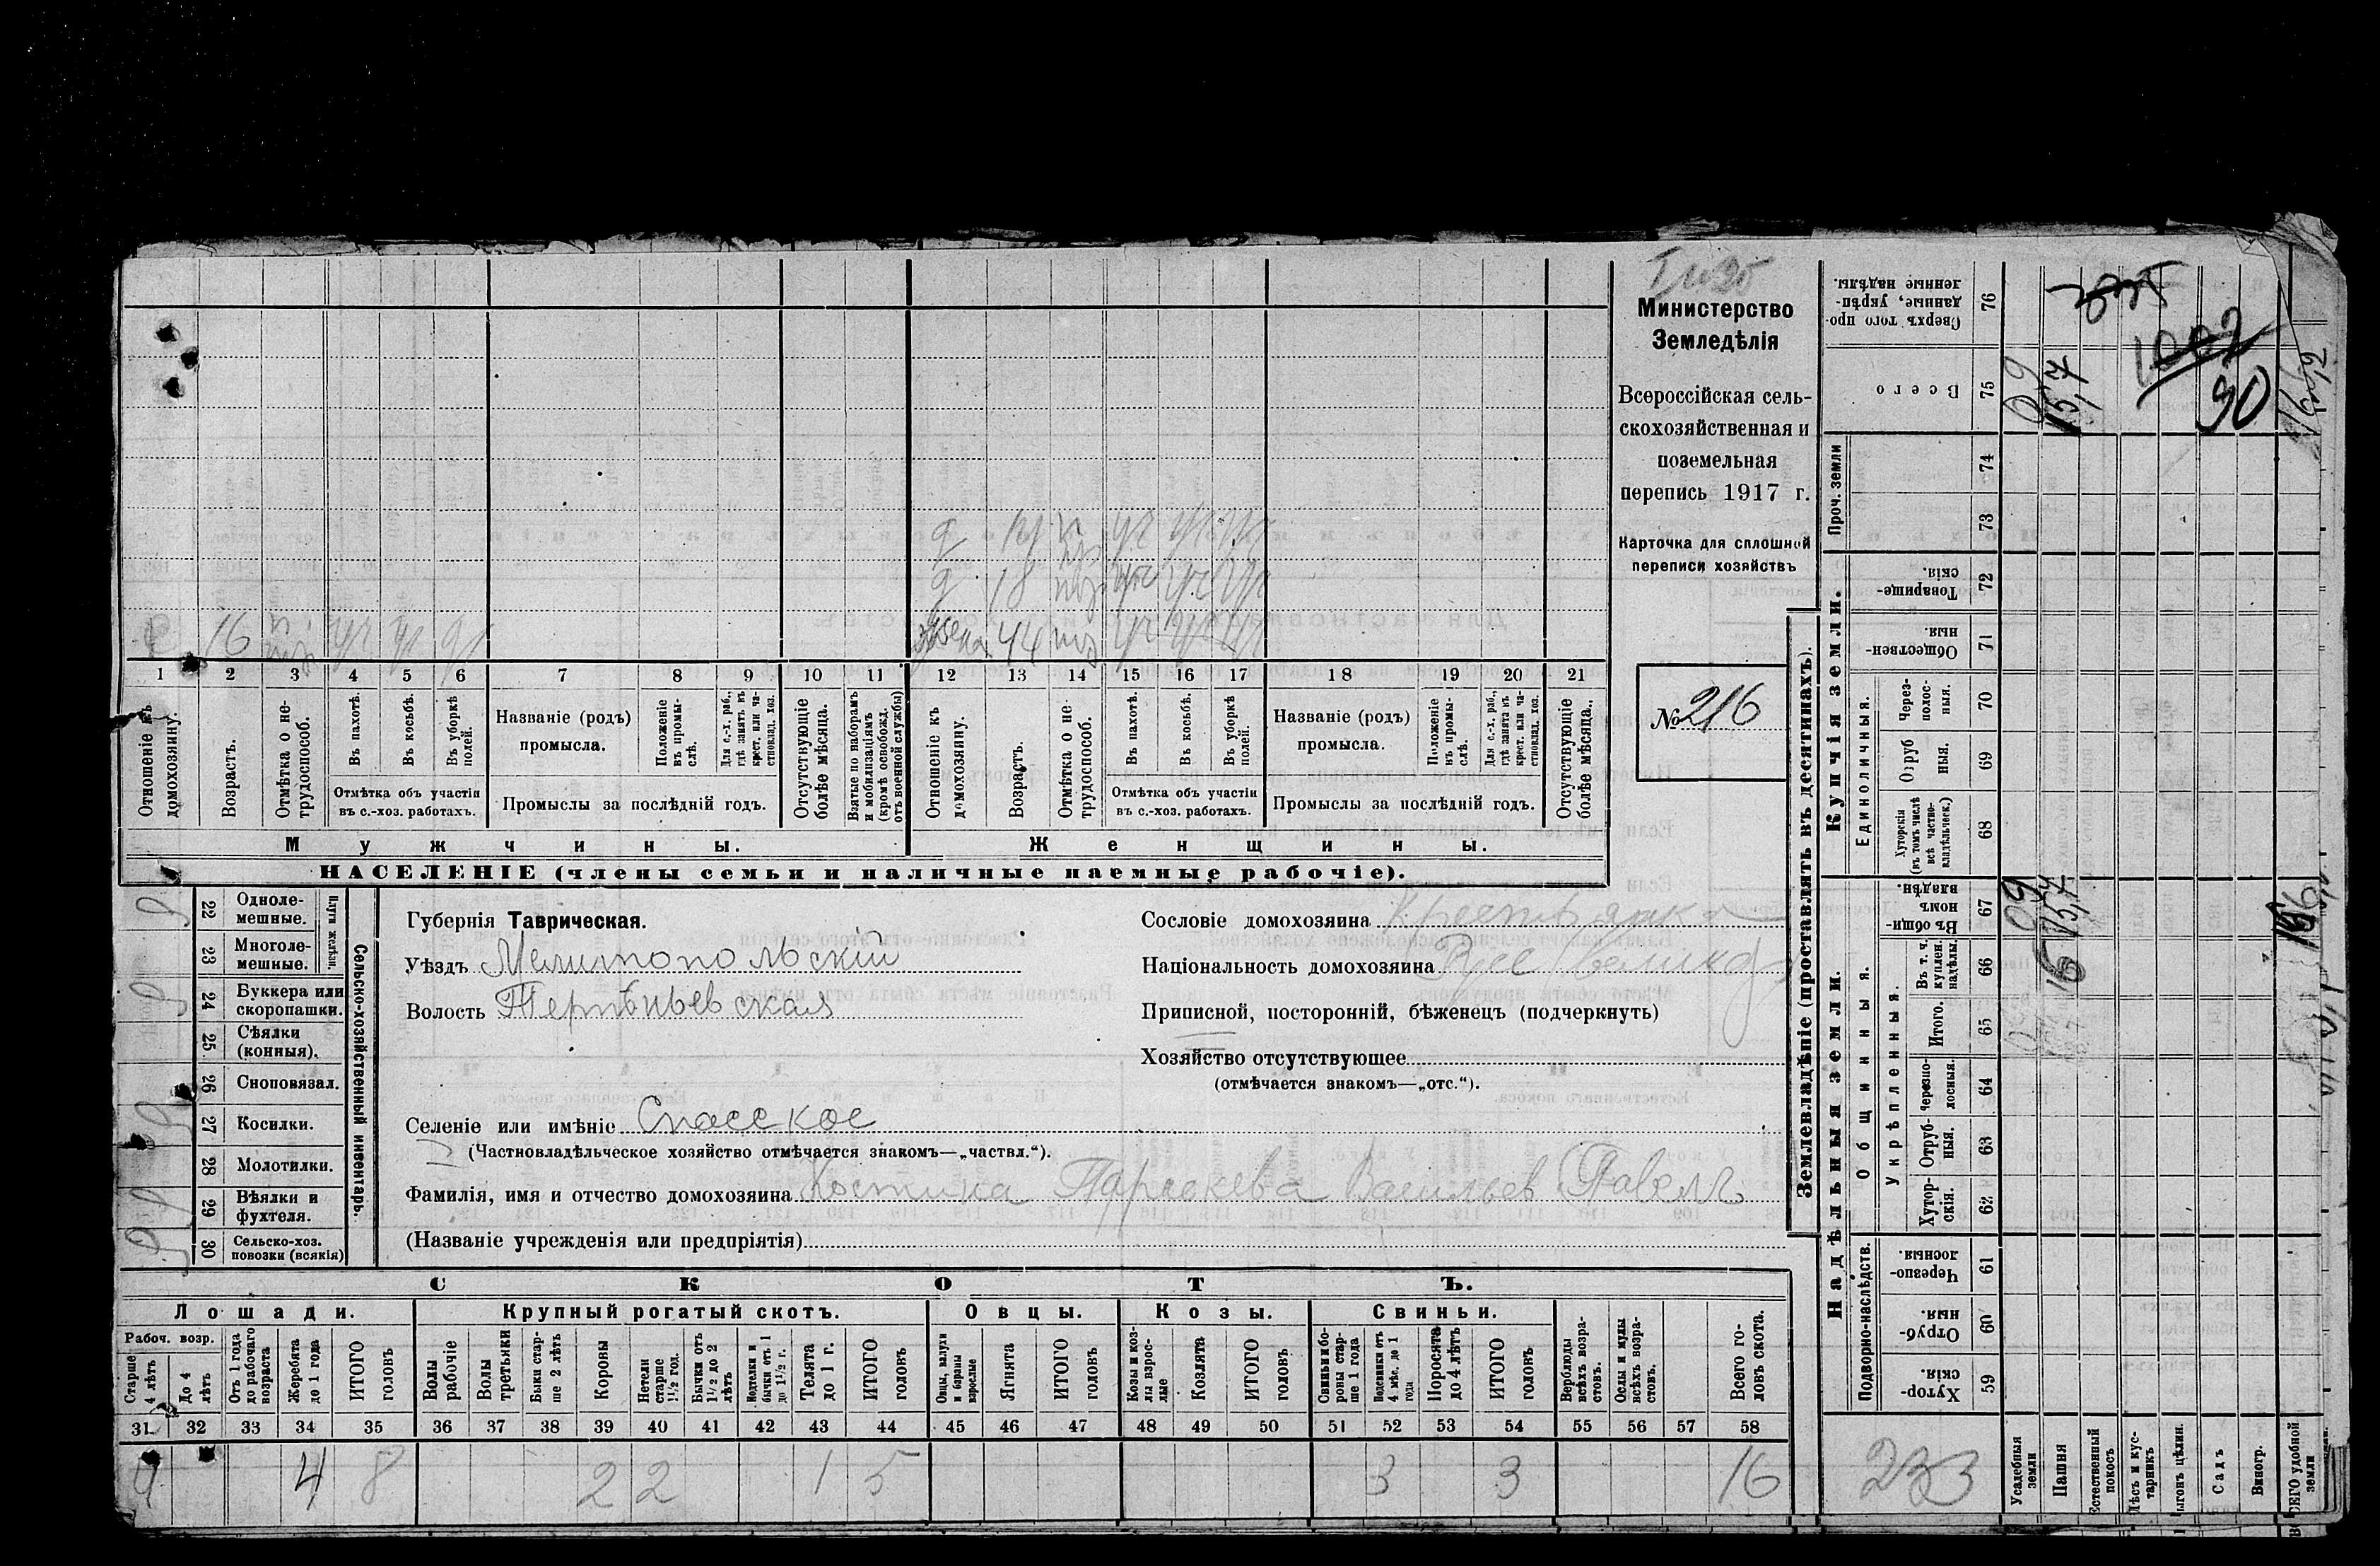 Министерство
Земледѣлія
Всероссійская сель-
скохозяйственная и
поземельная
перепись 1917 г.
Карточка для сплошной
переписи хозяйствъ
№ 216
д 18
жена 44
16
1 2 3 4 5 6 7 8 9 10 11 12 13 14 15 16 17 18 19 20 21
Отношеніе къ домохозяину.
Возрастъ.
Отмѣтка о не-трудоспособ.
Въ пахотѣ.
Въ косьбѣ.
Въ уборкѣ полей.
Отмѣтка объ участіи
въ с.-хоз. работахъ.
Названіе (родъ)
промысла.
Положеніе въ промы-слѣ.
Для с.-х. раб., гдѣ занятъ въ крест. или ча-стновлад. хоз.
Промыслы за послѣдній годъ.
Отсутствующіе болѣе мѣсяца.
Взятые по наборамъ и мобилизаціямъ (кромѣ освобожд. отъ военной службы)
Отношеніе къ домохозяину.
Возрастъ.
Отмѣтка о не-трудоспособ.
Въ пахотѣ.
Въ косьбѣ.
Въ уборкѣ полей.
Отмѣтка объ участіи
въ с.-хоз. работахъ.
Названіе (родъ)
промысла.
Положеніе въ промы-слѣ.
Для с.-х. раб., гдѣ занята въ крест. или ча-стновлад. хоз.
Промыслы за послѣдній годъ.
Отсутствующіе болѣе мѣсяца.
Мужчины.
Женщины.
НАСЕЛЕНІЕ (члены семьи и наличные наемные рабочіе).
22 Одноле-мешные.
23 Многоле-мешные.
Плуги желѣзн.
24 Буккера или скоропашки.
25 Сѣялки (конныя).
26 Сноповязал.
27 Косилки.
28 Молотилки.
29 Вѣялки и фухтеля.
30 Сельско-хоз. повозки (всякія)
Сельско-хозяйственный инвентарь.
Губернія Таврическая.
Уѣздъ Мелитопольскій
Волость Терпѣньевская
Селеніе или имѣніе Спасское
(Частновладѣльческое хозяйство отмѣчается знакомъ—„частвл.“).
Фамилія, имя и отчество домохозяина Костина Параскева Васильев Павелъ
(Названіе учрежденія или предпріятія)
Сословіе домохозяина Крестьянка
Національность домохозяина
Приписной, посторонній, бѣженецъ (подчеркнуть)
Хозяйство отсутствующее
(отмѣчается знакомъ—„отс.“).
СКОТЪ.
Лошади.
Крупный рогатый скотъ.
Овцы.
Козы.
Свиньи.
Рабоч. возр.
Старше 4 лѣтъ
До 4 лѣтъ
Отъ 1 года до рабочаго возраста
Жеребята до 1 года
ИТОГО головъ
Волы рабочіе
Волы третьяки
Быки стар-ше 2 лѣтъ
Коровы
Нетели старше 1½ год.
Бычки отъ 1½ до 2 лѣтъ
Подтелки и бычки отъ 1 до 1½ г.
Телята до 1 г.
ИТОГО головъ
Овцы, валухи и бараны взрослые
Ягнята
ИТОГО головъ
Козы и коз-лы взрос-лые
Козлята
ИТОГО головъ
Свиньи и бо-ровы стар-ше 1 года
Подсвинки отъ 4 мѣс. до 1 года
Поросята до 4 лѣтъ
ИТОГО головъ
Верблюды всѣхъ возра-стовъ.
Ослы и мулы всѣхъ возра-стовъ.
Всего го-ловъ скота.
31 32 33 34 35 36 37 38 39 40 41 42 43 44 45 46 47 48 49 50 51 52 53 54 55 56 57 58
4 8 2 2 1 5 3 3 16
Землевладѣніе (проставлять въ десятинахъ).
Надѣльныя земли.
Купчія земли.
Проч. земли
Подворно-наслѣдств.
Общинныя.
Укрѣпленныя.
Единоличныя.
Сверхъ того про-данные, укрѣп-ленные надѣлы. 76
Всего 75
74
73
Товарище-скія. 72
Обществен-ныя. 71
Через-полос-ныя. 70
Отруб-ныя. 69
Хуторскія (въ томъ числѣ всѣ частно-владѣльческ.) 68
Въ общи-номъ владѣн. 67
Въ т. ч. куплен. надѣлы. 66
Итого. 65
Черезпо-лосныя. 64
Отруб-ныя. 63
Хутор-скія. 62
Черезпо-лосныя. 61
Отруб-ныя. 60
Хутор-скія. 59
09
15,7
90
233
Усадебныя земли
Пашня
Естественный покосъ
Лѣсъ и кус-тарникъ
Садъ
Виногр.
ВСЕГО удобной земли